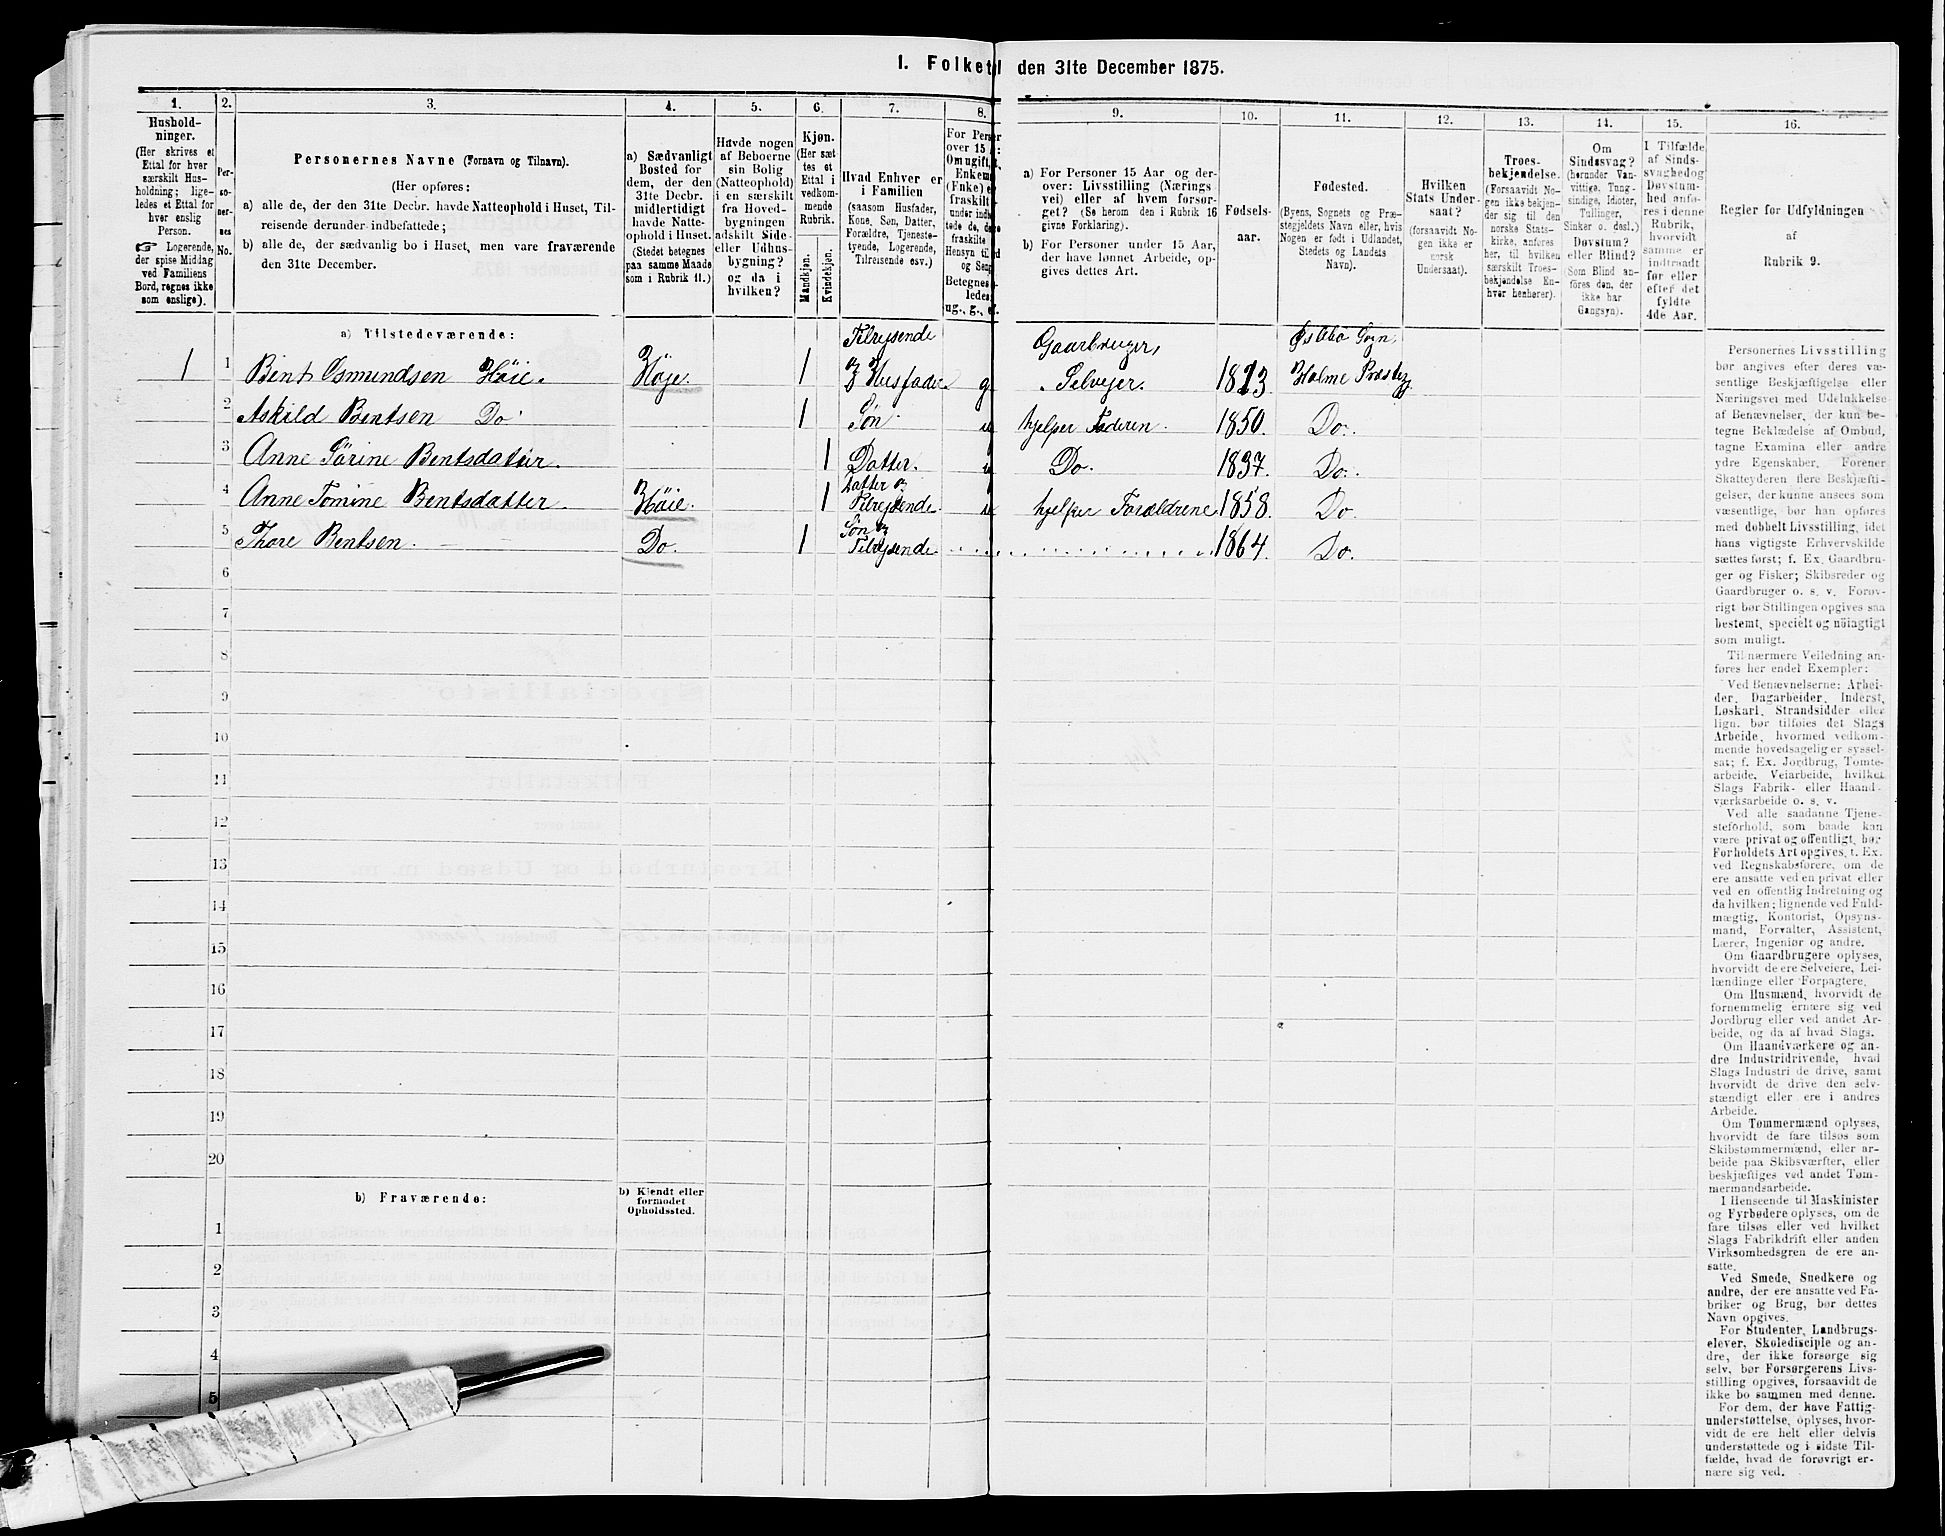 1. Folket
den 31te December 1875.
1.
2.
3.
4.
5.
6.
7.
8.
9.
10.
11.
12.
13.
14.
15.
16.
Hushold-
ninger.
(Her skrives et
Ettal for hver
særskilt Hus-
holdning; lige-
ledes et Ettal for
hver enslig
Person.
☞ Logerende,
der spise Middag
ved Familiens
Bord, regnes ikke
som enslige).
Per-
so-
ner-
nes
No.
Personernes Navne (Fornavn og Tilnavn).
(Her opføres:
a) alle de, der den 31te Decbr. havde Natteophold i Huset, Til-
reisende derunder indbefattede;
b) alle de, der sædvanlig bo i Huset, men vare fraværende
den 31te December.
a) Sædvanligt
Bosted for
dem, der den
31te Decbr.
midlertidigt
havde Natte-
ophold i Huset.
(Stedet betegnes
paa samme Maade
som i Rubrik 11.)
Havde nogen
af Beboerne
sin Bolig
(Natteophold)
i en særskilt
fra Hoved-
bygningen
adskilt Side-
eller Udhus-
bygning?
og da i
hvilken?
Kjøn.
(Her sæt
tes et
Ettal i
vedkom-
mende
Rubrik.
Mandkjøn.
Kvindekjøn.
Hvad Enhver er
i Familien
(saasom Husfader,
Kone, Søn, Datter,
Forældre, Tjeneste-
tyende, Logerende,
Tilreisende osv.)
For Person
over 15 A
Om ugift,
Enkem
(Fnke) e
fraskilt
under indb
tede de, de
fraskilte
Hensyn til
og Seng
Betegnes
ledes
ug., g., e.
a) For Personer 15 Aar og der-
over: Livsstilling (Nærings
vei) eller af hvem forsør-
get? (Se herom den i Rubrik 16
givne Forklaring).
b) For Personer under 15 Aar,
der have lønnet Arbeide, op-
gives dettes Art.
Fødsels-
aar.
Fødested.
(Byens, Sognets og Præ-
stegjeldets Navn eller, hvis
Nogen er født i Udlandet,
Stedets og Landets
Navn).
Hvilken
Stats Under-
saat?
(forsaavidt No-
gen ikke er
norsk
Undersaat).
Troes-
bekjendelse.
(Forsaavidt No-
gen ikke bekjen-
der sig til den
norske Stats-
kirke, anføres
her, til hvilken
særskilt Troes-
bekjendelse En-
hver henhører).
Om
Sindssvag?
(herunder Van-
vittige, Tung-
sindige, Idioter,
Tullinger,
Sinker o. desl.)
Døvstum?
eller Blind?
(Som Blind an-
føres den, der
ikke har
Gangsyn).
I Tilfælde
af Sinds-
svaghed og
Døvstum-
hed anfø-
res i denne
Rubrik,
hvorvidt
samme er
indtraadt
før eller
efter det
fyldte
4de Aar.
Regler før Udfyldningen
af
Rubrik 9.
a) Tilstedeværende:
Tilreisende
Gaarbruger,
Østebø Sogn,
1 1 Bent Osmundsen Høie. Høje. 1 og Husfader g Selvejer. 1813 Holme Præsteg
2 Askild Bentsen Do. 1 Søn u hjelper Faderen. 1850. Do.
3 Anne Sørine Bentsdatter. 1 Datter. u Do. 1837. Do.
Datter og
4 Anne Tomine Bentsdatter Høie. 1 Tilrejsende. u hjelper Forældrene 1858. Do.
Søn og
5 Thore Bentsen. Do. 1 Tilrejsende 1864. Do.
6
7
8
9
10
11
12
13
14
15
16
17
18
19
20
b) Fraværende:
b) Kjendt eller
formodet
Opholdssted.
1
2
3
4
5
Personernes Livsstilling
bør angives efter deres væ-
sentlige Beskjæftigelse eller
Næringsvei med Udelukkelse
af Benævnelser, der kun be-
tegne Beklædelse af Ombud,
tagne Examina eller andre
ydre Egenskaber. Forener
Skatteyderen flere Beskjæfti-
gelser, der kunne ansees som
væsentlige, bør han opføres
med dobbelt Livsstilling, idet
hans vigtigste Erhvervskilde
sættes først; f. Ex. Gaardbru-
ger og Fisker; Skibsreder og
Gaardbruger o. s. v. Forøv-
rigt bør Stillingen opgives saa
bestemt, specielt og nøiagtigt
som muligt.
Til nærmere Veiledning an-
føres her endel Exempler:
Ved Benævnelserne: Arbei-
der, Dagarbeider, Inderst,
Løskarl, Strandsidder eller
lign. bør tilføies det Slags
Arbeide, hvormed vedkom-
mende hovedsagelig er syssel-
sat; f. Ex. Jordbrug, Tomte-
arbeide, Veiarbeide, hvilket
Slags Fabrik- eller Haand-
værksarbeide o. s. v.
Ved alle saadanne Tjene-
steforhold, som baade kan
være privat og offentligt, bør
Forholdets Art opgives, t. Ex.
ved Regnskabsførere, om de
ere ansatte ved en privat eller
ved en offentlig Indretning og
da hvilken; lignende ved Fuld-
mægtig, Kontorist, Opsyns-
mand, Forvalter, Assistent,
Lærer, Ingeniør og andre.
Om Gaardbrugere oplyses,
hvorvidt de ere Selveiere, Lei-
lændinge eller Forpagtere.
Om Husmænd, hvorvidt de
fornemmelig ernære sig ved
Jordbrug eller ved andet Ar-
beide, og da af hvad Slags.
Om Haandværkere og an-
dre Industridrivende, hvad
Slags Industri de drive, samt
hvorvidt de drive den selv-
stændigt eller ere i andres
Arbeide.
Om Tømmermænd oplyses,
hvorvidt de fare tilsøs som
Skibstømmermænd, eller ar-
beide paa Skibsværfter, eller
beskjæftiges ved andet Tøm-
mermandsarbeide.
I Henseende til Maskinister
og Fyrbødere oplyses, om de
fare tilsøs eller ved hvilket
Slags Fabrikdrift eller anden
Virksomhedsgren de ere an-
satte.
Ved Smede, Snedkere og
andre, der ere ansatte ved Fa-
briker og Brug, bør dettes
Navn opgives.
For Studenter, Landbrugs-
elever, Skoledisciple og an-
dre, der ikke forsørge sig
selv, bør Forsørgerens Livs-
stilling opgives, forsaavidt de
ikke bo sammen med denne.
For dem, der have Fattig-
understøttelse, oplyses, hvor-
vidt de ere helt eller delvis
understøttede og i sidste Til-
fælde, hvad de forøvrigt er-
nære sig ved.